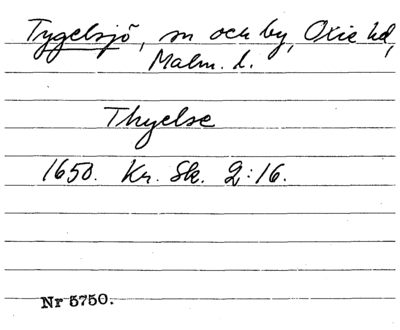 Tygelsjö, sn och by, Oxie hd,
Malm. l.
Thyelse
1650. Kr. Sk. 2:16.
Nr 5750.